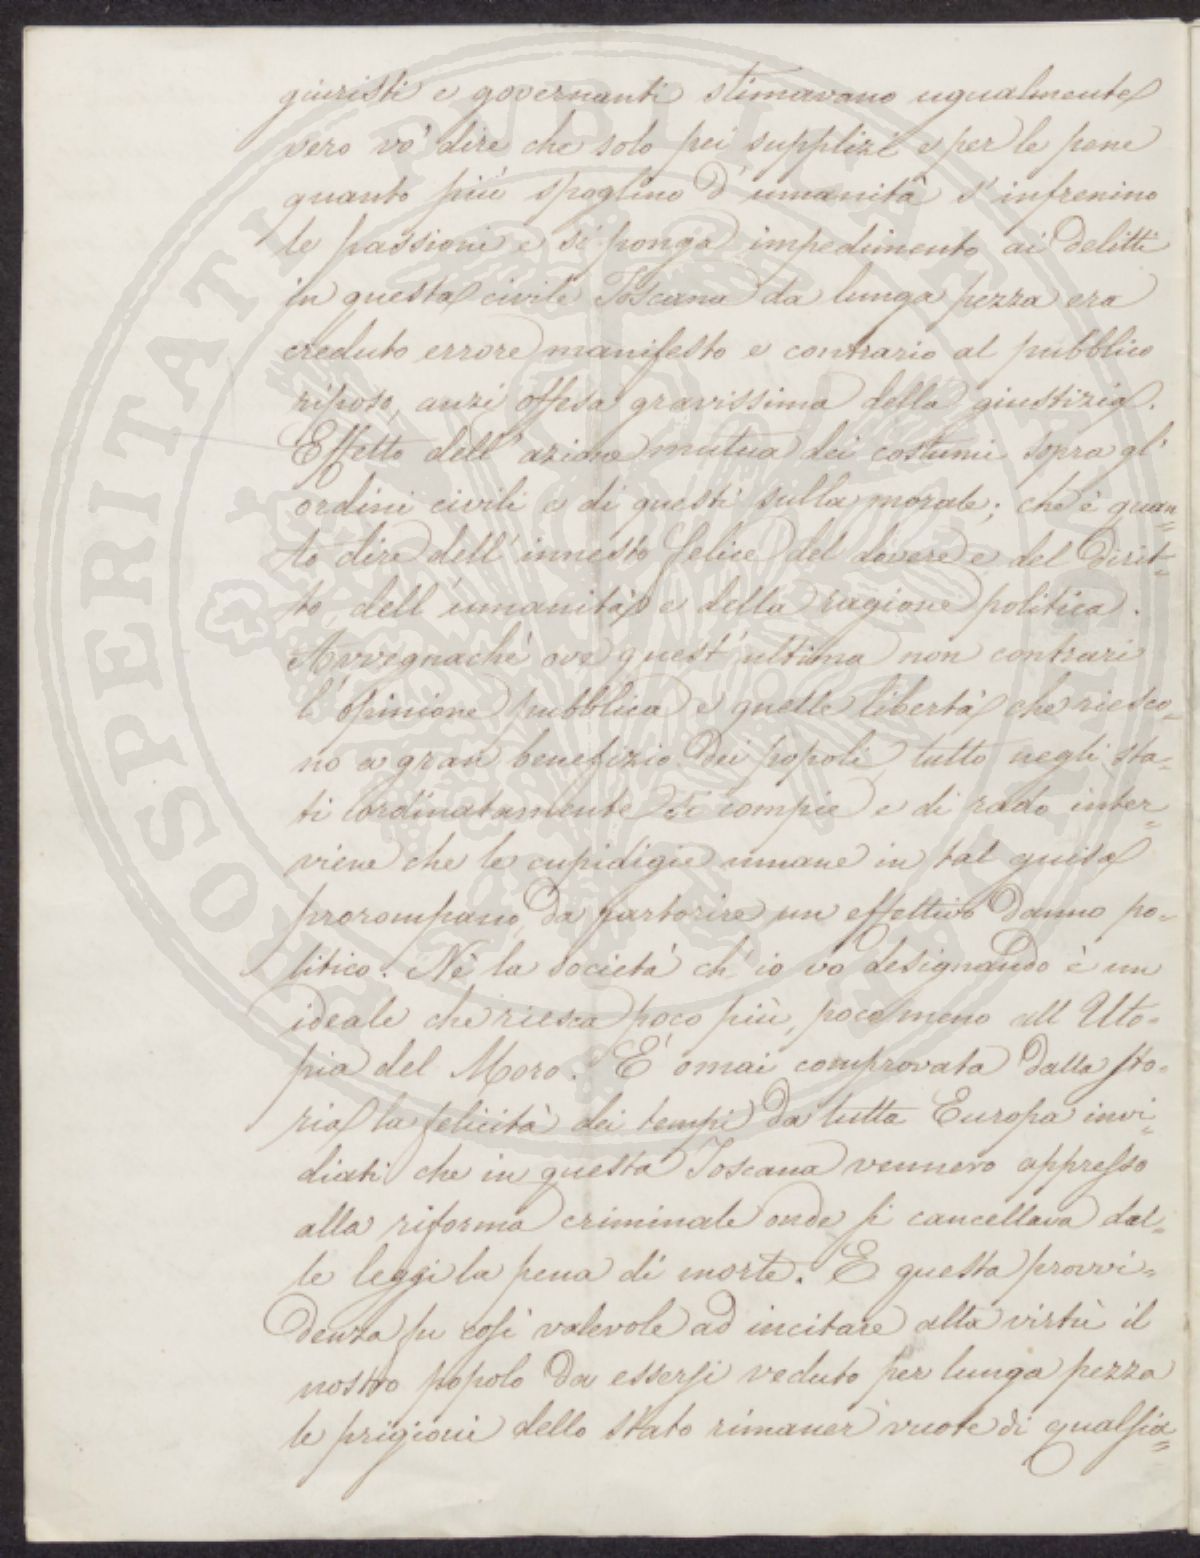 giuristi e governanti stimavano ugualmente
vero vo' dire che solo pei supplizi e per le pene
quanto più spoglino d'umanità s'infrenino
le passioni e si ponga impedimento ai delitti
in questa civile Toscana da lunga pezza era
creduto errore manifesto e contrario al pubblico
riposo, anzi offesa gravissima della giustizia.
Effetto dell'azione mutua dei costumi sopra gl'
ordini civili e di questi sulla morale; che è quan=
to dire dell'innesto felice del dovere e del dirit=
to, dell'umanità e della ragione politica.
Avvegnaché ove quest'ultima non contrari
l'opinione pubblica e quelle libertà che riesco=
no a gran benefizio dei popoli, tutto negli sta=
ti ordinatamente si compie e di rado inter=
viene che le cupidigie umane in tal guisa
prorompano, da partorire un effettivo danno po=
litico. Nè la società ch'io vo designando è un
ideale che riesca poco più, poco meno all'Uto=
pia del Moro. E' omai comprovata dalla sto=
ria la felicità dei tempi da tutta Europa invi=
diati che in questa Toscana vennero appresso
alla riforma criminale onde si cancellava dal=
le leggi la pena di morte. E questa provvi=
denza fu così valevole ad incitare alla virtù il
nostro popolo da essersi veduto per lunga pezza
le prigioni dello stato rimaner vuote di qualsia=
PROSPERITATI PUBLICAE